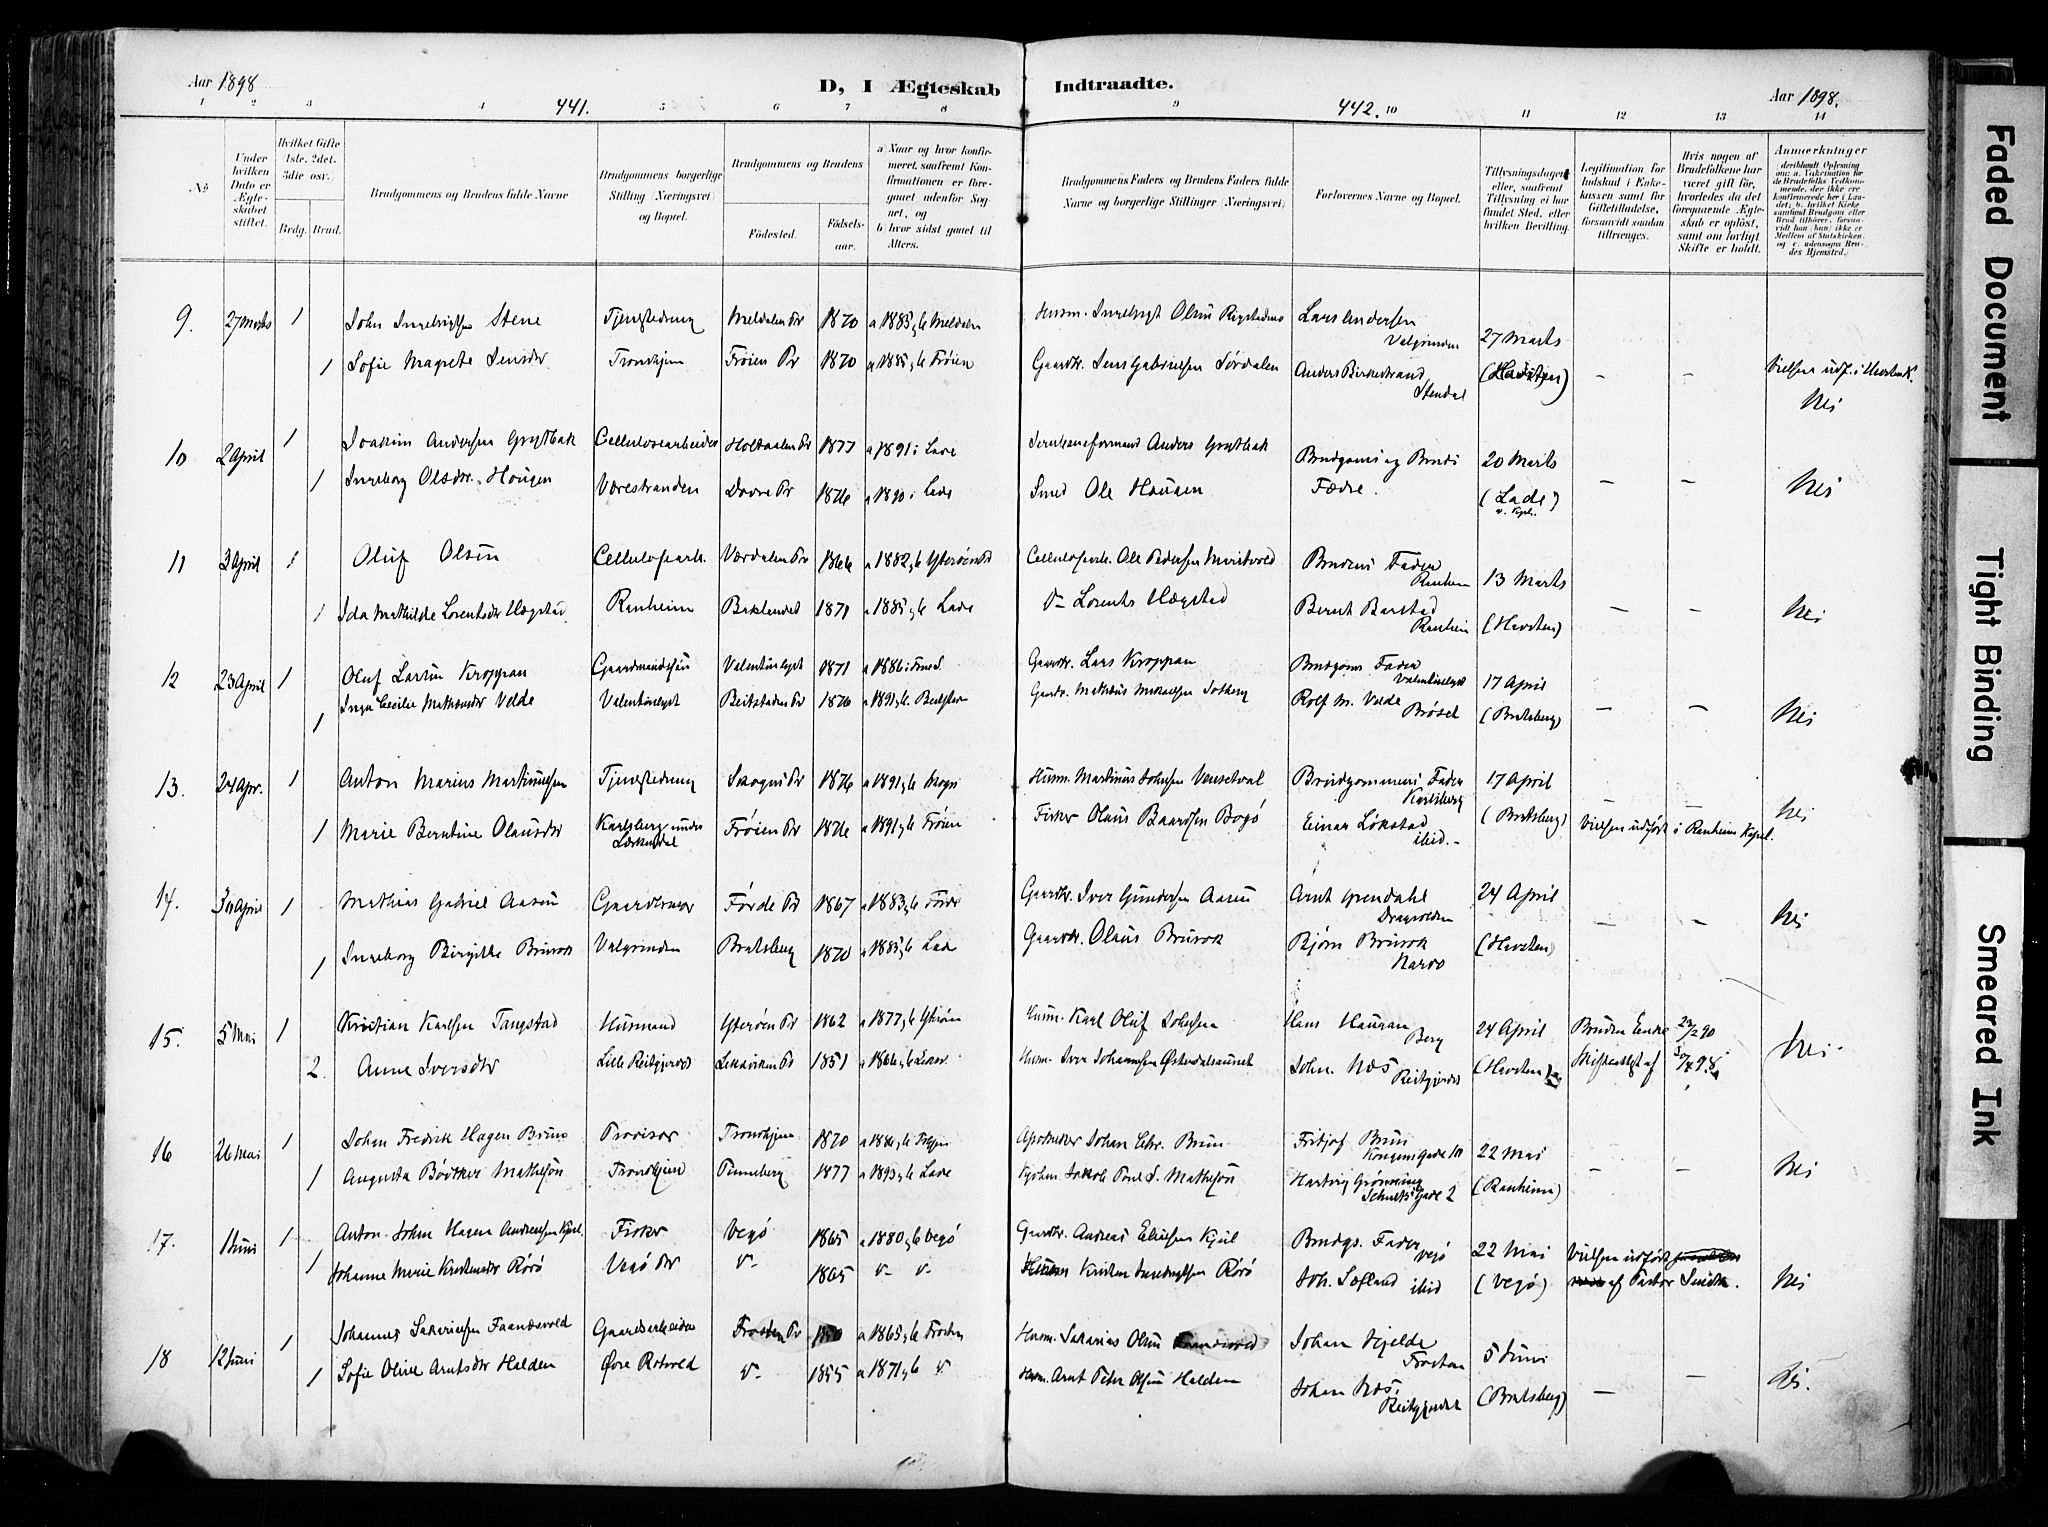 Aar 1898
D, I Ægteskab Indtraadte.
Aar 1898.
441.
442.
1 2 3 4 5 6 7 8 9 10 11 12 13 14
No
Under hvilken Dato er Ægteskabet stiftet.
Hvilket Gifte 1ste, 2det, 3die osv.
Brdg. Brud.
Brudgommens og Brudens fulde Navne
Brudgommens borgerlige Stilling (Næringsvei) og Bopæl.
Brudgommens og Brudens
Fødested.
Fødselsaar.
a Naar og hvor konfirmeret, saafremt Konfirmationen er foregaaet udenfor Sognet, og
b hvor sidst gaaet til Alters.
Brudgommens Faders og Brudens Faders fulde Navne og borgerlige Stillinger (Næringsvei)
Forlovernes Navne og Bopæl.
Tillysningsdagen eller, saafremt Tillysning ei har fundet Sted, efter hvilken Bevilling.
Legitimation for Indskud i Enkekassen samt for Giftetilladelse, forsaavidt saadan tiltrænges.
Hvis nogen af Brudefolkene har været gift før, hvorledes da det foregaaende Ægteskab er opløst, samt om lovligt Skifte er holdt.
Anmærkninger
deriblandt Oplysning om: a. Vakcination for de Brudefolks Vedkommende, der ikke ere konfirmerede her i Landet; b. hvilket Kirkesamfund Brudgom eller Brud tilhører, forsaavidt han (hun) ikke er Medlem af Statskirken, og c. udensogns Brudes Hjemsted.)
9. 27 Marts 1 John Ingebrigtsen Stene Tjenestedreng Meldalen Pr 1870 a 1885, b Meldalen Husm. Ingebrigt Olsen Lars Andersen Valgrinden 27 Marts
1 Sofie Magrete Jensdtr Trondhjem Frøien Pr 1870 a 1885, b Frøien Gaardbr. Jens Gabrielsen Sørdalen Anders Birkestrand Stendal (Havsten) – – Vielsen udf. i Havsten K.
Nei
10 2 April 1 Joakim Andersen Grytbak Cellulosearbeider Holtaalen Pr 1873 a 1891 i Lade Anders Grytbak Brudgoms og Bruds 20 Marts
1 Ingeborg Olsdtr. Haugen Værestranden Dovre Pr 1876 a 1890 i Lade Smed Ole Haugen Fædre. (Lade) – – Nei
11 3 April 1 Oluf Olsen Cellulosearb. Værdalen Pr 1866 a 1882, b Ytterøen Pr Cellulosearb. Ole Pedersen Brudens Fader Ranheim 13 Marts
1 Ida Mathilde Lorentsdtr Hægstad Ranheim Baklandet 1871 a 1885, b Lade Lorents Hægstad Bernt Barstad Ranheim (Havsten) – – Nei
12 23 April 1 Oluf Larsen Kroppan Gaardmandssøn Valentinlyst 1871 a 1886 i Gaardbr. Lars Kroppan Brudgoms Fader Valentinlyst 17 April
1 Inga Cecilie Mathisdtr Velde Valentinlyst Beitstaden Pr 1876 a 1891, b. Beitstaden Gaardbr. Mathias Mikaelsen Solberg Rolf M. Velde Brøset (Bratsberg) – – Nei
13. 24 Apr. 1 Anton Marius Martinussen Tjenestedreng Skogns Pr 1876 a 1891, b Skogn Husm. Martinus Johnsen Brudgommens Fader Karlsberg 17 April
1 Marie Berntine Olausdtr Karlsberg under Lerkendal Frøien Pr 1876 a 1891, b Frøien Fisker Olaus Baardsen Bogø Einar Løkstad ibid. – (Bratsberg) – – Vielsen udført i Ranheim Kapel. Nei
14. 30 April 1 Mathias Gabriel Aasen Gaardbruger Førde Pr 1867 a 1883, b Førde Gaardbr. Iver Gundersen Aasen Arnt Grendahl Dragvolden 24 April
1 Ingeborg Birgitte Brurok Valgrinden Bratsberg 1870 a 1885, b Lade Gaardbr. Olaus Brurok Bjørn Brurok Nardo (Havsten) – – Nei
15. 5 Mai 1 Kristian Karlsen Tangstad Husmand Ytterøen Pr 1862 a 1877, b Ytterøen Husm. Karl Oluf Johnsen Hans Haugan Berg 24 April Bruden Enke 23/2 90
2. Anne Iversdtr Lille Reitgjerdet Leksviken Pr 1851 a 1866, b Leksv. Husm. Iver Johannesen John. Næs Reitgjerdet (Havsten) Skifteattest af 30/4 98. Nei
16 26 Mai 1 Johan Fredrik Hagen Bruun Provisor Trondhjem 1870 Apotheker Johan Chr. Bruun Fritjof Bruun Kongensgade 22 Mai
1 Augusta Bøtker Matheson Trondhjem Pinneberg 1877 a 1893, b Lade Kjøbm. Jakob Poul S. Matheson Hartvig Grønning Schultz Gade 2 (Ranheim) – – Nei
17. 1 Juni 1 Anton Johan Hagen Andreassen Kjul Fisker Vegø 1865 a 1880, b Vegø Gaardbr. Andreas Eliassen Kjul Brudgs. Fader Vegø 22 Mai Vielsen udført
1 Johanne Marie Kristensdtr Rørø Vegø Pr 1865 Kristen Ingebrigtsen Rørø Joh. Sæfland ibid (Vegø) af Pastor Smidth. Nei
18 12 Juni 1 Johannes Sakariesen Faanesvold Gaardsarbeider Frosten Pr 1850 a 1865, b Frosten Husm. Sakarias Olsen Faanesvold Johan Hjelde Frosten 5 Juni
1 Sofie Oline Arntsdtr Halden Øvre Rotvold 1855 a 1871, b Husm. Arnt Peter Olsen Halden Johan Næs, Reitgjerdet (Bratsberg) – – Nei.
Faded Document
Tight Binding
Smeared Ink